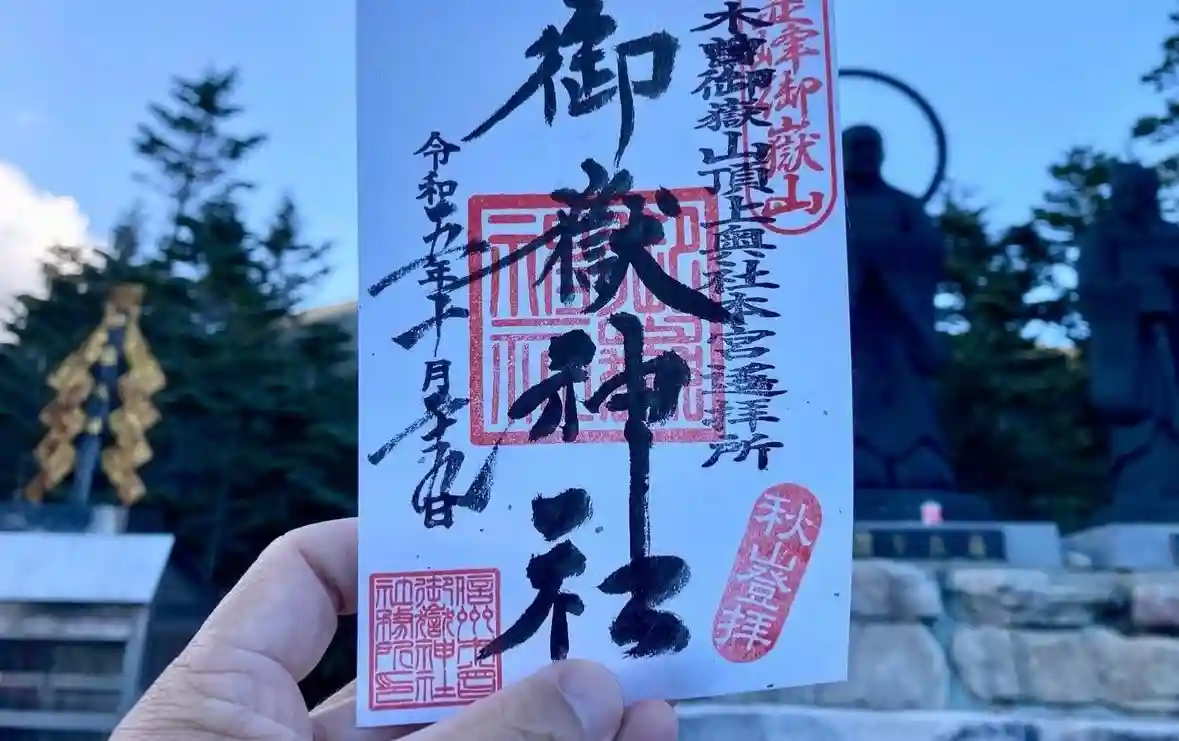 峯御嶽山
木曽御嶽山頂上奥社本宮遥拝所
秋山登拝
御嶽神社
御嶽
神社
令和五年十月十九日
信州木曽
御嶽神社
社務所印